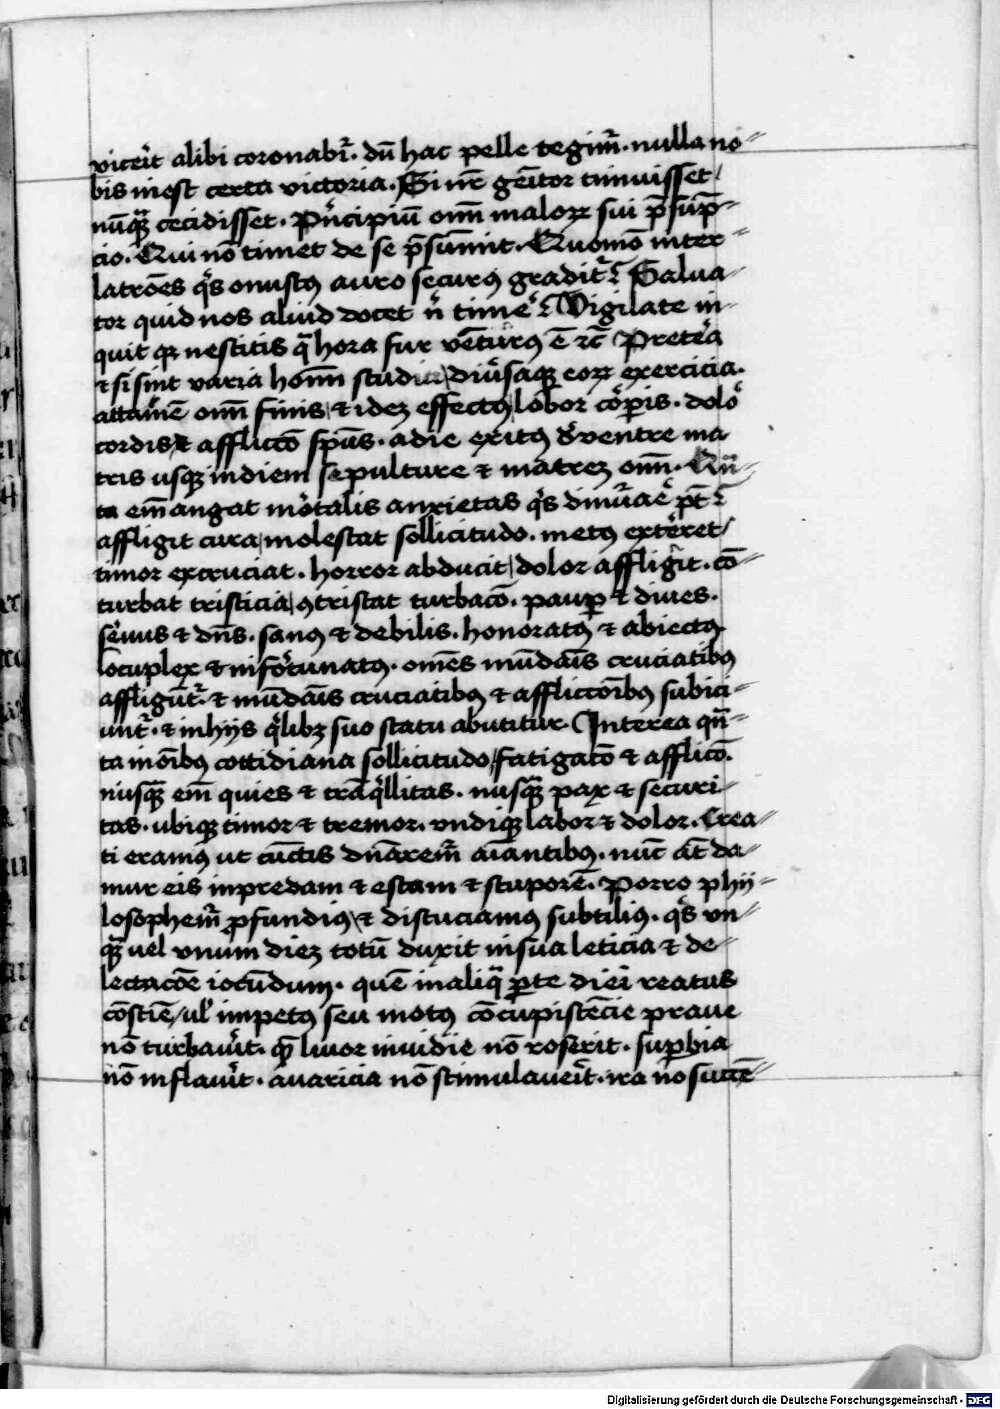 vicerīt alibi coronabit̄. dū hac pelle tegim̄. nulla no
bis inest certa victoria. Si nr̄ genitor timuisset
nūq̄ꝫ cecidisset. Pͥncipiū om̄ malorꝝ sui p̄sūp
cio. Qui nō timet de se p̄sumit. Quomō inter
latrōes qͥs onustꝰ auro securꝰ gradit̄ Salua
tor quid nos aliud docet nͥ timē Vigilate in
quit qꝫ nescitis q̄ hora fur vēturꝰ ē ⁊c̄ Preteͣa
et si sint varia homī studia diūsaqꝫ eorꝝ exercicia.
attamē om̄ finis et ideꝫ effectꝰ labor cōꝑis. dolō
cordis et afflictō spūs. a die exitꝰ de ventre ma
tris usqꝫ in diem sepulture et matreꝫ om̄. Qn̄
ta em̄ angat mōtalis anxietas qͥs dinūae pt̄
affligit cura molestat sollicitudo. metꝰ extēret
timor excruciat. horror abducit dolor affligit. cō
turbat tristicia ꝯtristat turbacō. pauꝑ et diues.
sēuus et dn̄s. sanꝰ et debilis. honoratꝰ et abiectꝰ
locuplex et infōtunatꝰ. om̄es mūdāis cruciatibꝰ
affligūt̄. et mūdāis cruciatibꝰ et afflictōibꝰ subici
unt̄. et in hijs qͥlibꝫ suo statu abutitur. Interea qn̄
ta in oībꝰ cottidiana sollicitudo fatigacō et afflicō.
nusq̄ꝫ em̄ quies et trāqͥllitas. nusq̄ꝫ pax et securi
tas. ubiqꝫ timor et tremor. vndiqꝫ labor et dolor. Crea
ti eramꝰ ut cūctis dn̄arem̄ aīantibꝰ. nūc āt da
mur eis in predam et escam et stuporē. Porro phij
losophem̄ ꝓfundiꝰ et discuciamꝰ subtiliꝰ. qͥs vn
q̄ꝫ vel vnum dieꝫ totū duxit in sua leticia et de
lectacōe iocūdum. quē in aliq̄ ꝑte diei reatus
cōsciē ul̄ impetꝰ seu motꝰ cōcupiscēcie praue
nō turbauīt. quē liuor inuidie nō roserit. suꝑbia
nō inflauīt. auaricia nō stimulauerīt. ira nō succē
Digitalisierung gefördert durch die Deutsche Forschungsgemeinschaft - DFG